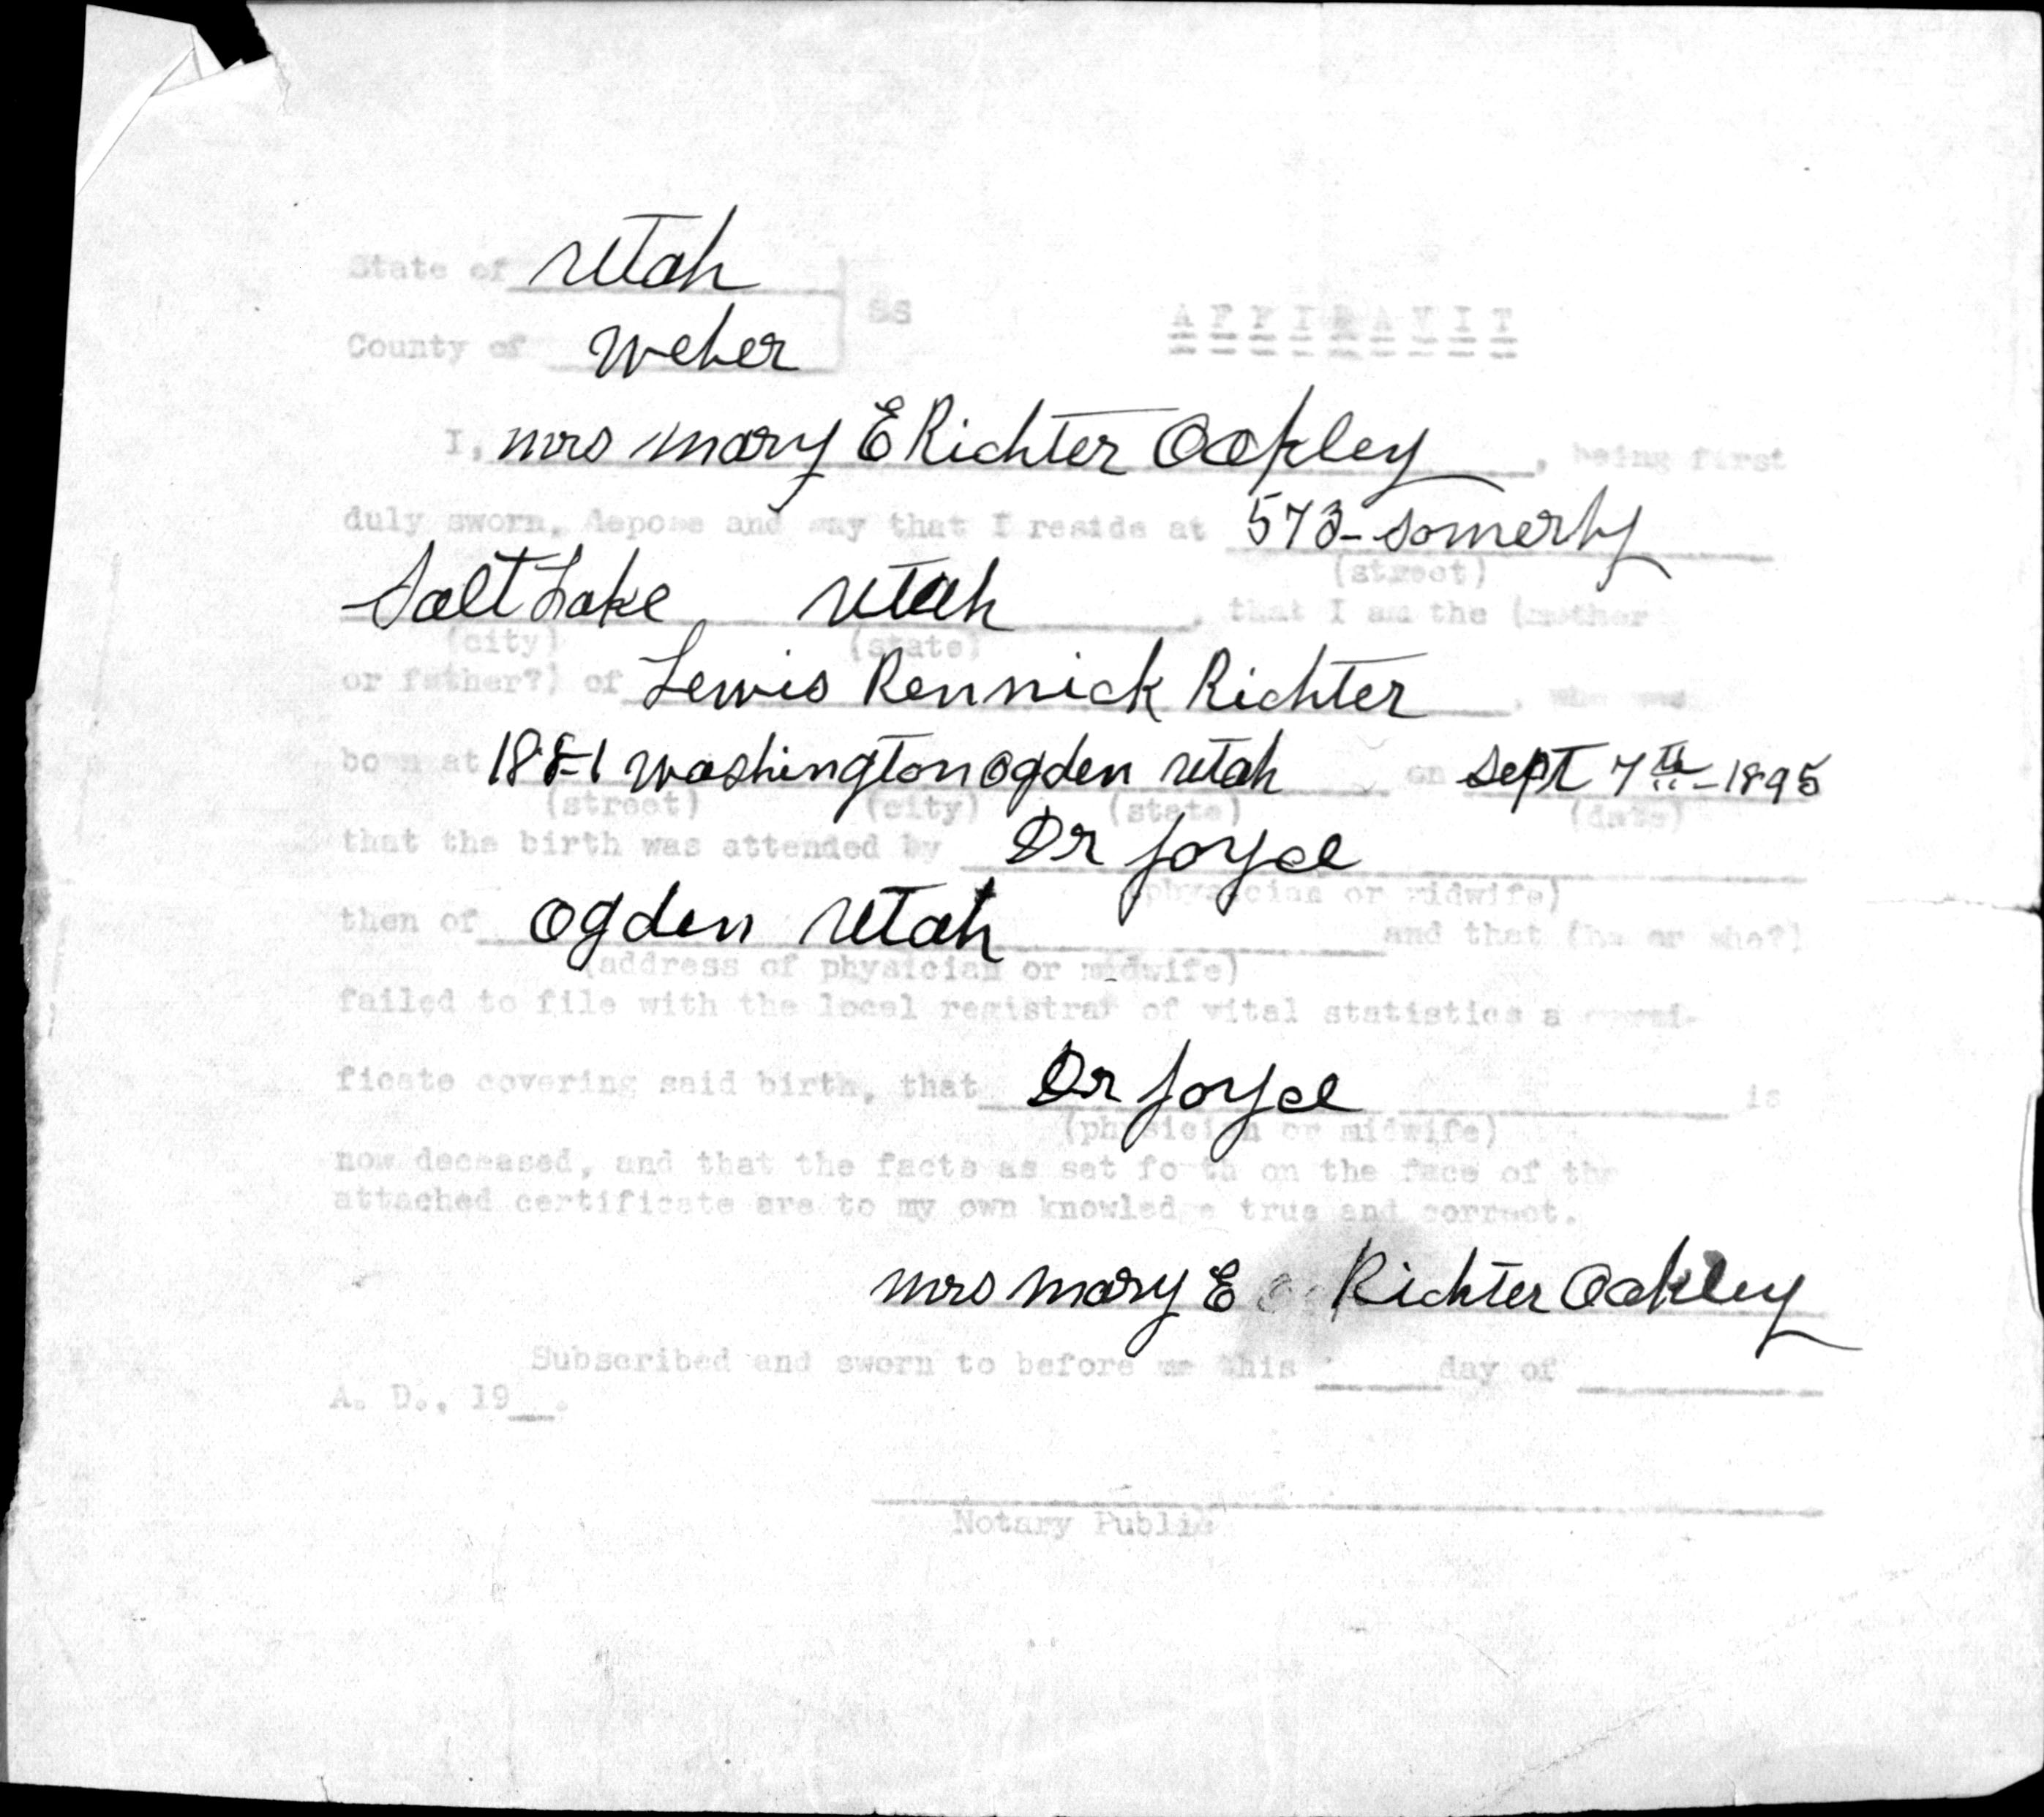 State of Utah
SS
AFFIDAVIT
County of Weber
I, mrs mary E Richter Oakley, being first
duly sworn, depose and say that I reside at 573- Somerby
(street)
Salt Lake Utah, that I am the (mother
(city) (state)
or father?) of Lewis Rennick Richter, who was
born at 1881 Washington Ogden Utah on Sept 7th-1895
(street) (city) (state) (date)
that the birth was attended by Dr Joyce
(physician or midwife)
then of Ogden Utah and that (he or she?)
(address of physician or midwife)
failed to file with the local registrar of vital statistics a certi-
ficate covering said birth, that Dr Joyce is
(physician or midwife)
now deceased, and that the facts as set forth on the face of the
attached certificate are to my own knowledge true and correct.
mrs mary E Richter Oakley
Subscribed and sworn to before me this ____ day of ____
A. D., 19__.
Notary Public